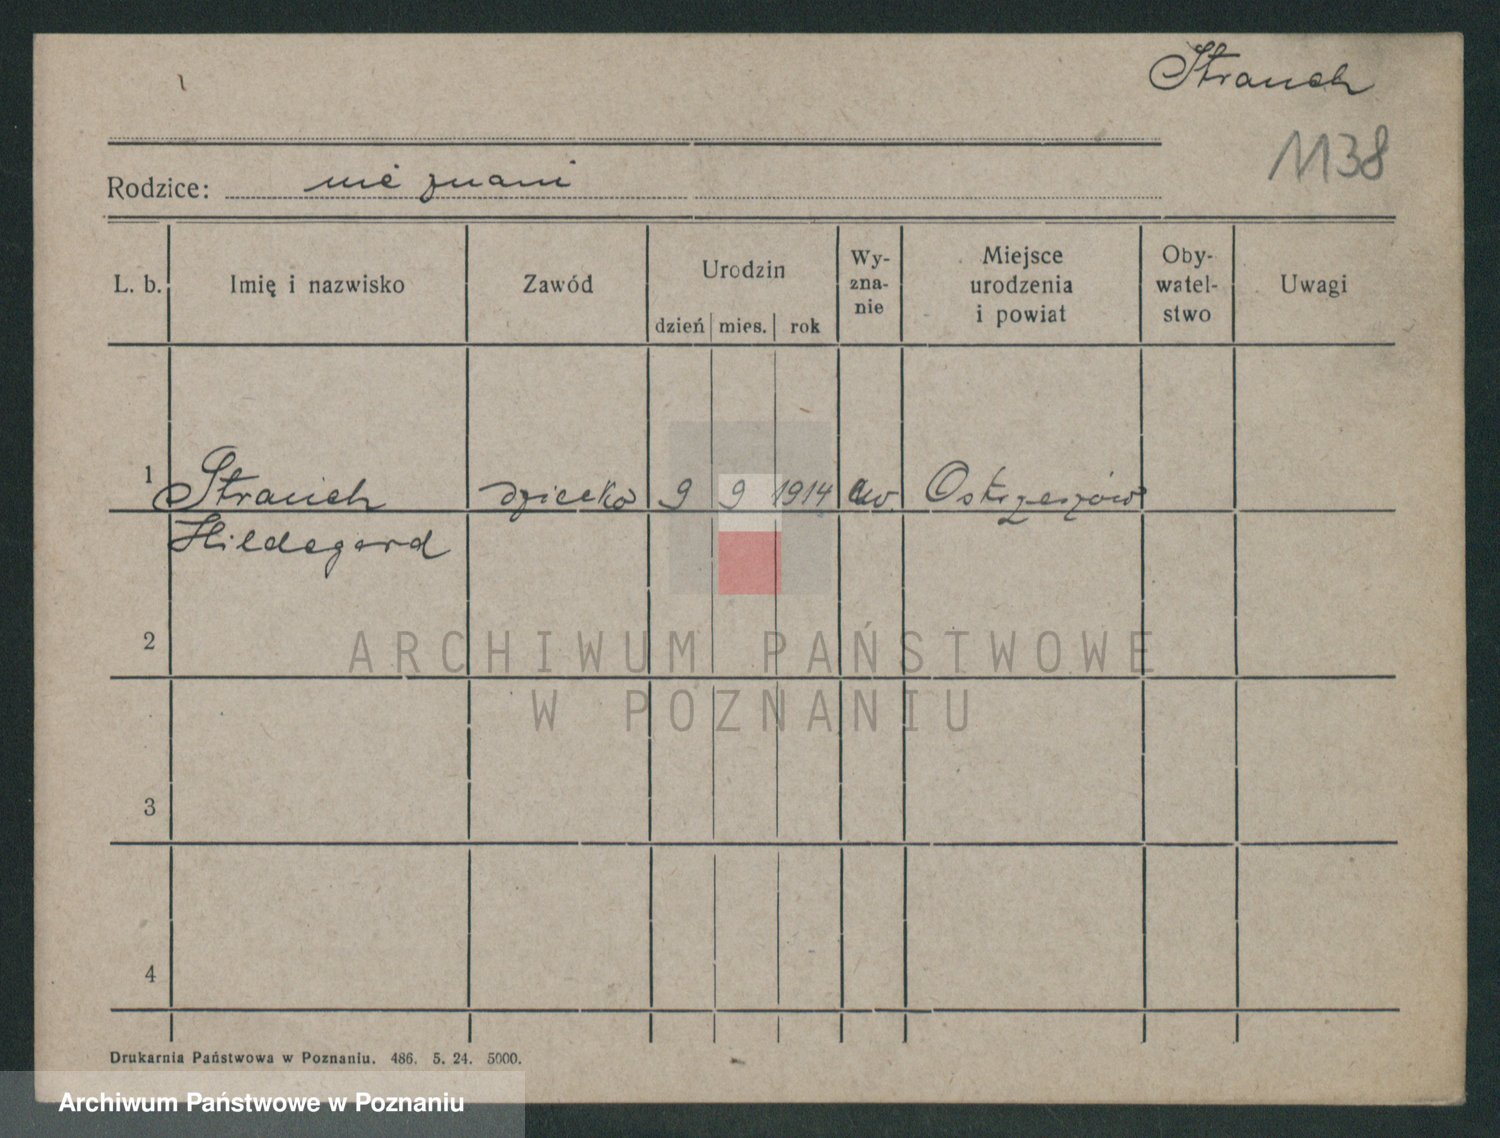 Strauch
1138
Rodzice: nie znani
L. b. Imię i nazwisko Zawód Urodzin dzień mies. rok Wy-zna-nie Miejsce urodzenia i powiat Oby-watel-stwo Uwagi
1 Strauch dziecko 9 9 1914 ew. Ostrzeszów
Hildegard
2
ARCHIWUM PAŃSTWOWE
W POZNANIU
3
4
Drukarnia Państwowa w Poznaniu. 486. 5. 24. 5000.
Archiwum Państwowe w Poznaniu